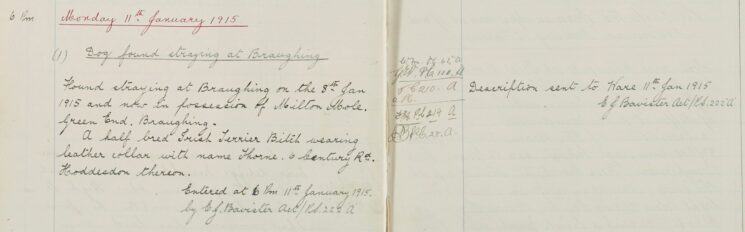 6 Pm
Monday 11th January 1915
(1) Dog found straying at Braughing
Found straying at Braughing on the 8th Jan
1915 and now in possession of Milton Mole.
Green End. Braughing.
A half bred Irish Terrier Bitch wearing
leather collar with name Thorne. 6 Century Rd.
Hoddesdon thereon.
Entered at 6 Pm 11th January 1915.
by E.J. Bavister Act/P.S. 222 A
Description sent to Ware 11th Jan 1915
E.J. Bavister Act/P.S. 222 A